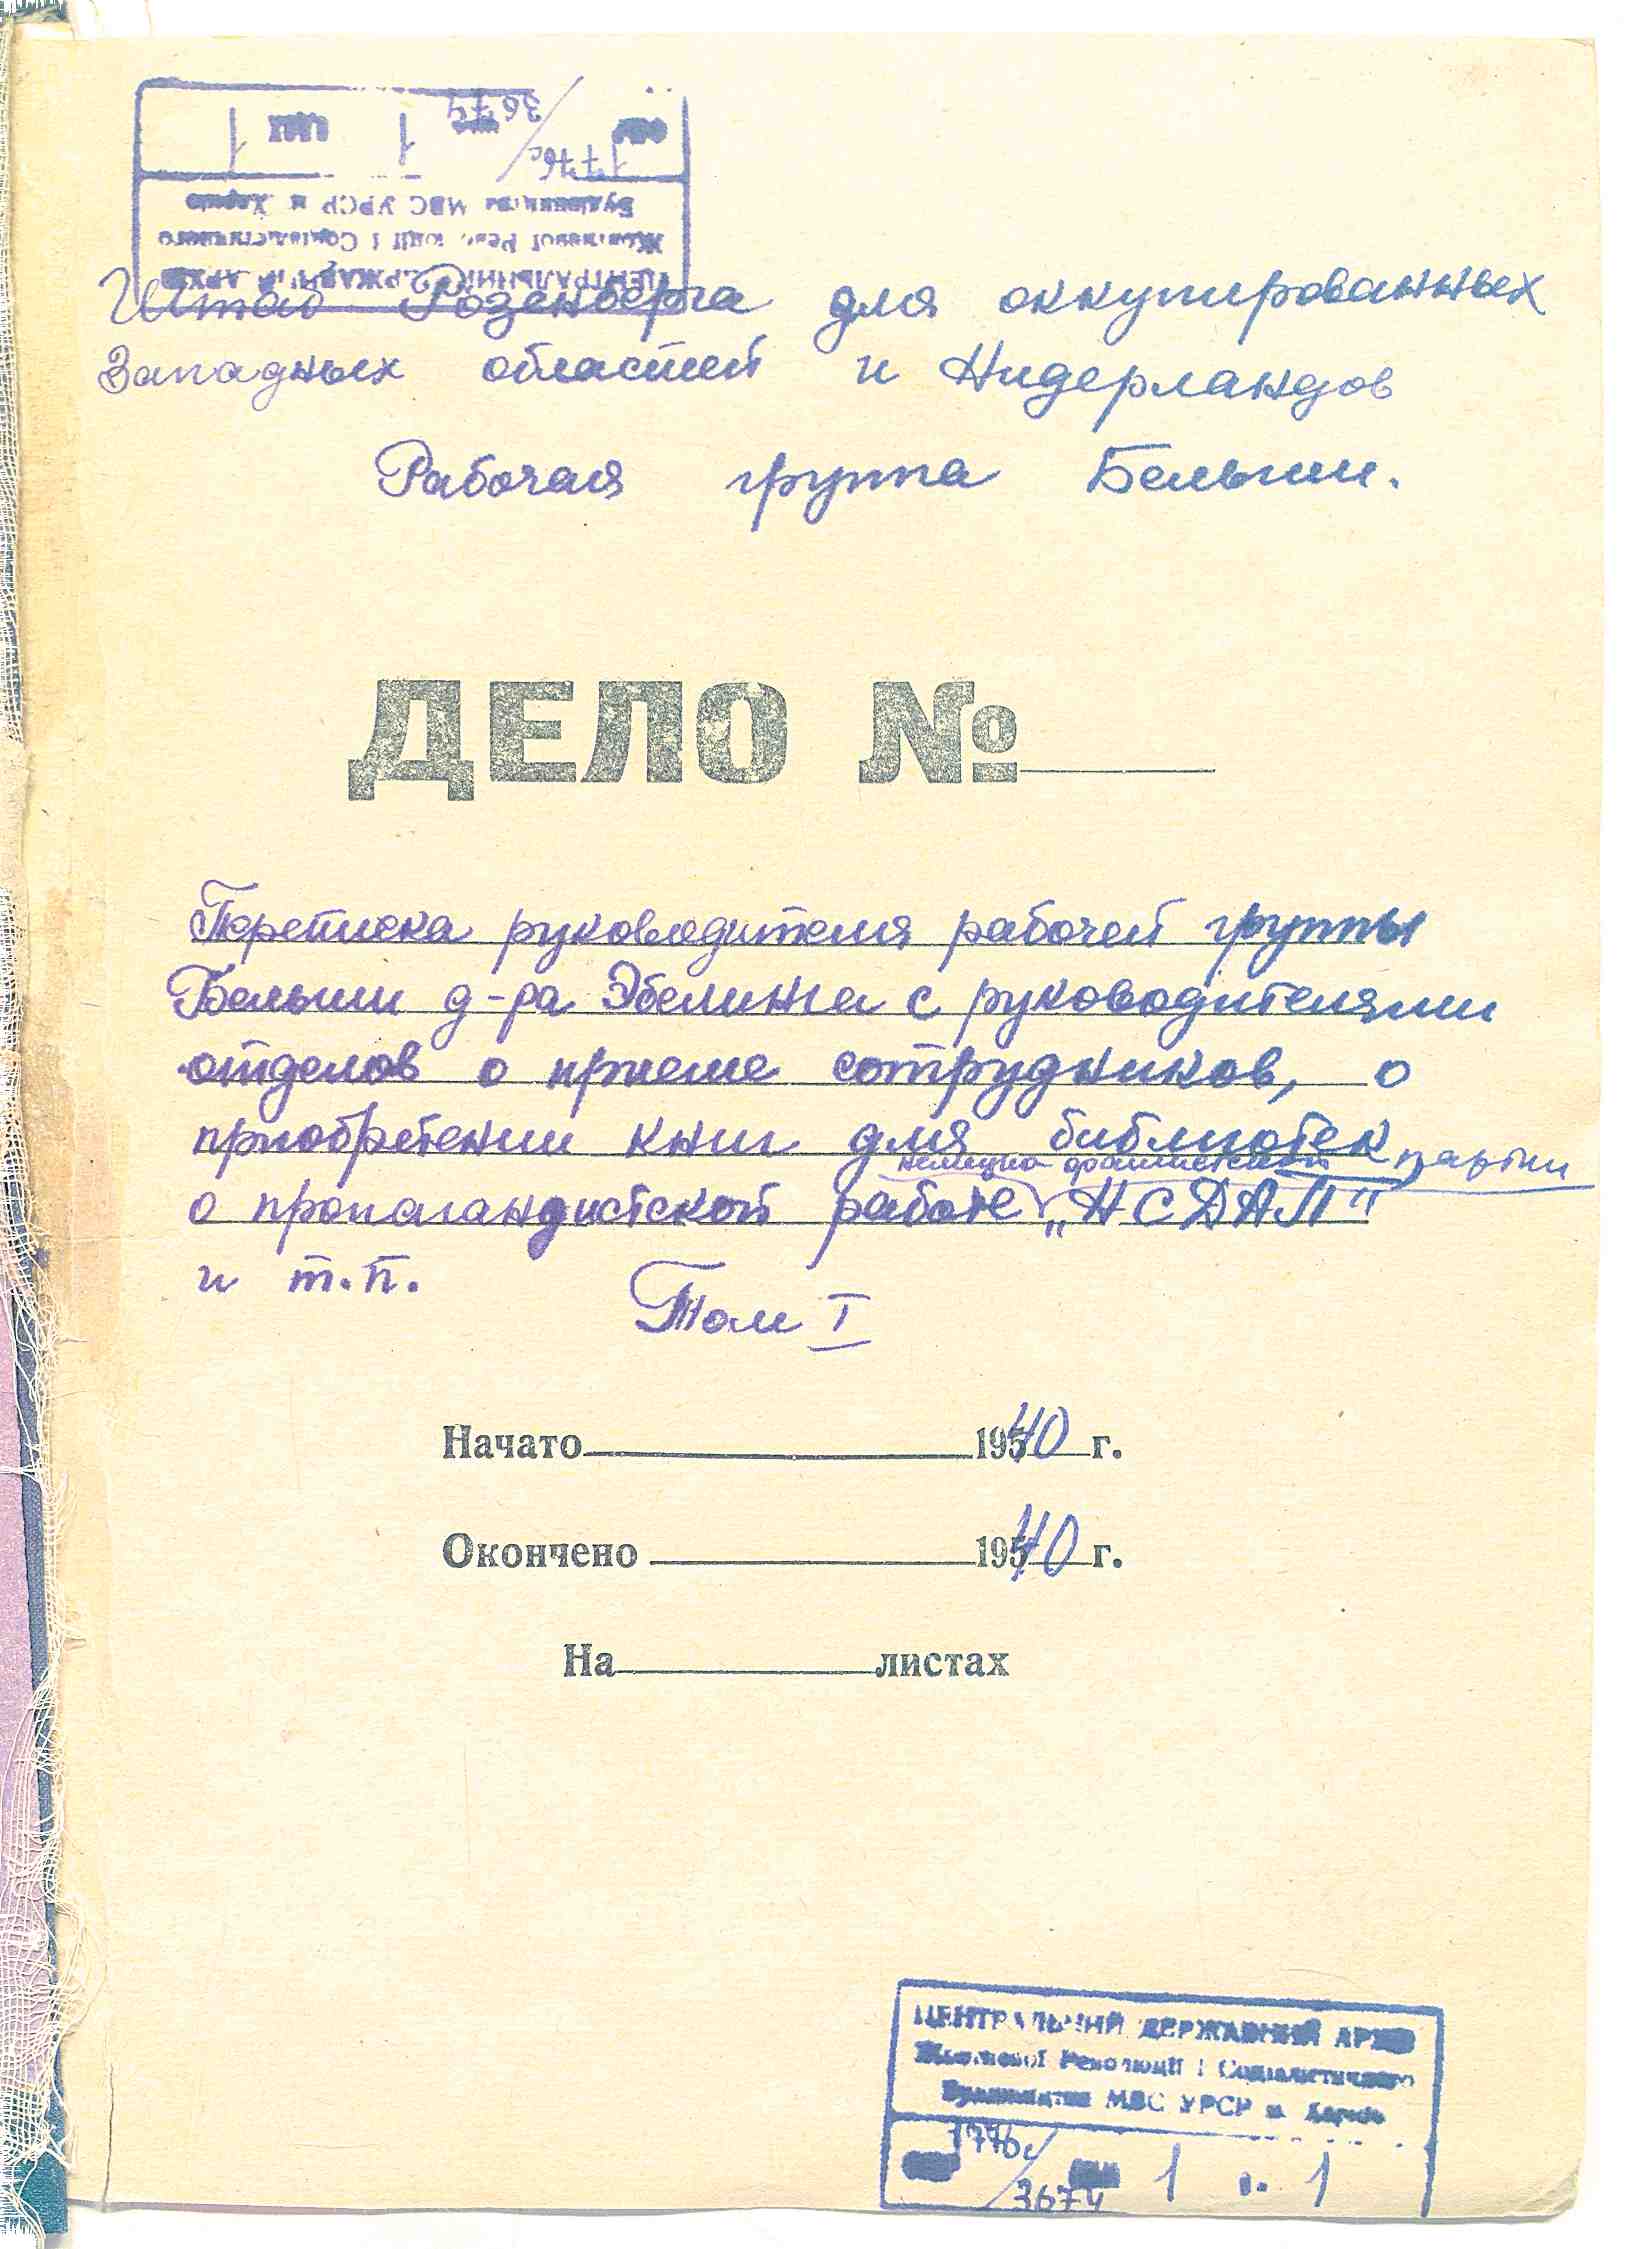 1776с/3674 1 1
ЦЕНТРАЛЬНИЙ ДЕРЖАВНИЙ АРХІВ
Жовтневої Революції і Соціалістичного
Будівництва МВС УРСР м. Харків
Штаб Розенберга для оккупированных
Западных областей и Нидерландов
Рабочая группа Бельгии.
ДЕЛО №
Переписка руководителя рабочей группы
Бельгии д-ра Эбелинга с руководителями
отделов о приеме сотрудников, о
приобретении книг для библиотек
немецко-фашистской партии
о пропагандистской работе „НСДАП"
и т.п.
Том I
Начато 1940 г.
Окончено 1940 г.
На листах
ЦЕНТРАЛЬНИЙ ДЕРЖАВНИЙ АРХІВ
Жовтневої Революції і Соціалістичного
Будівництва МВС УРСР м. Харків
1776с/3674 1 1